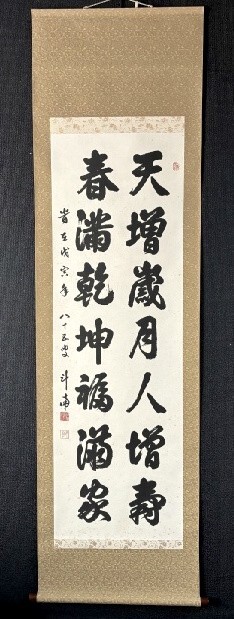 天増歳月人増壽
春満乾坤福満家
歳在戊寅年 八十五叟 斗南